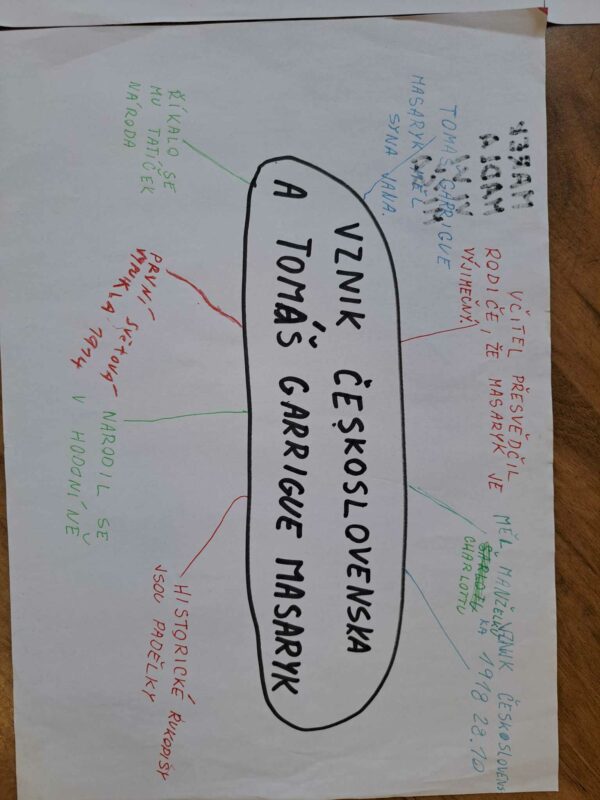 VZNIK ČESKOSLOVENSKA
A TOMÁŠ GARRIGUE MASARYK
TOMAŠ GARRIGUE
MASARYK MĚL
SYNA JANA.
UČITEL PŘESVĚDČIL
RODIČE, ŽE MASARYK JE
VÝJIMEČNÝ.
MĚL MANŽELKU
CHARLOTTU
VZNIK ČESKOSLOVENS
KA 1918 28.10
ŘÍKALO SE
MU TATÍČEK
NÁRODA
PRVNÍ SVĚTOVÁ
VZNIKLA 1914
NARODIL SE
V HODONÍNĚ
HISTORICKÉ RUKOPISY
JSOU PADĚLKY